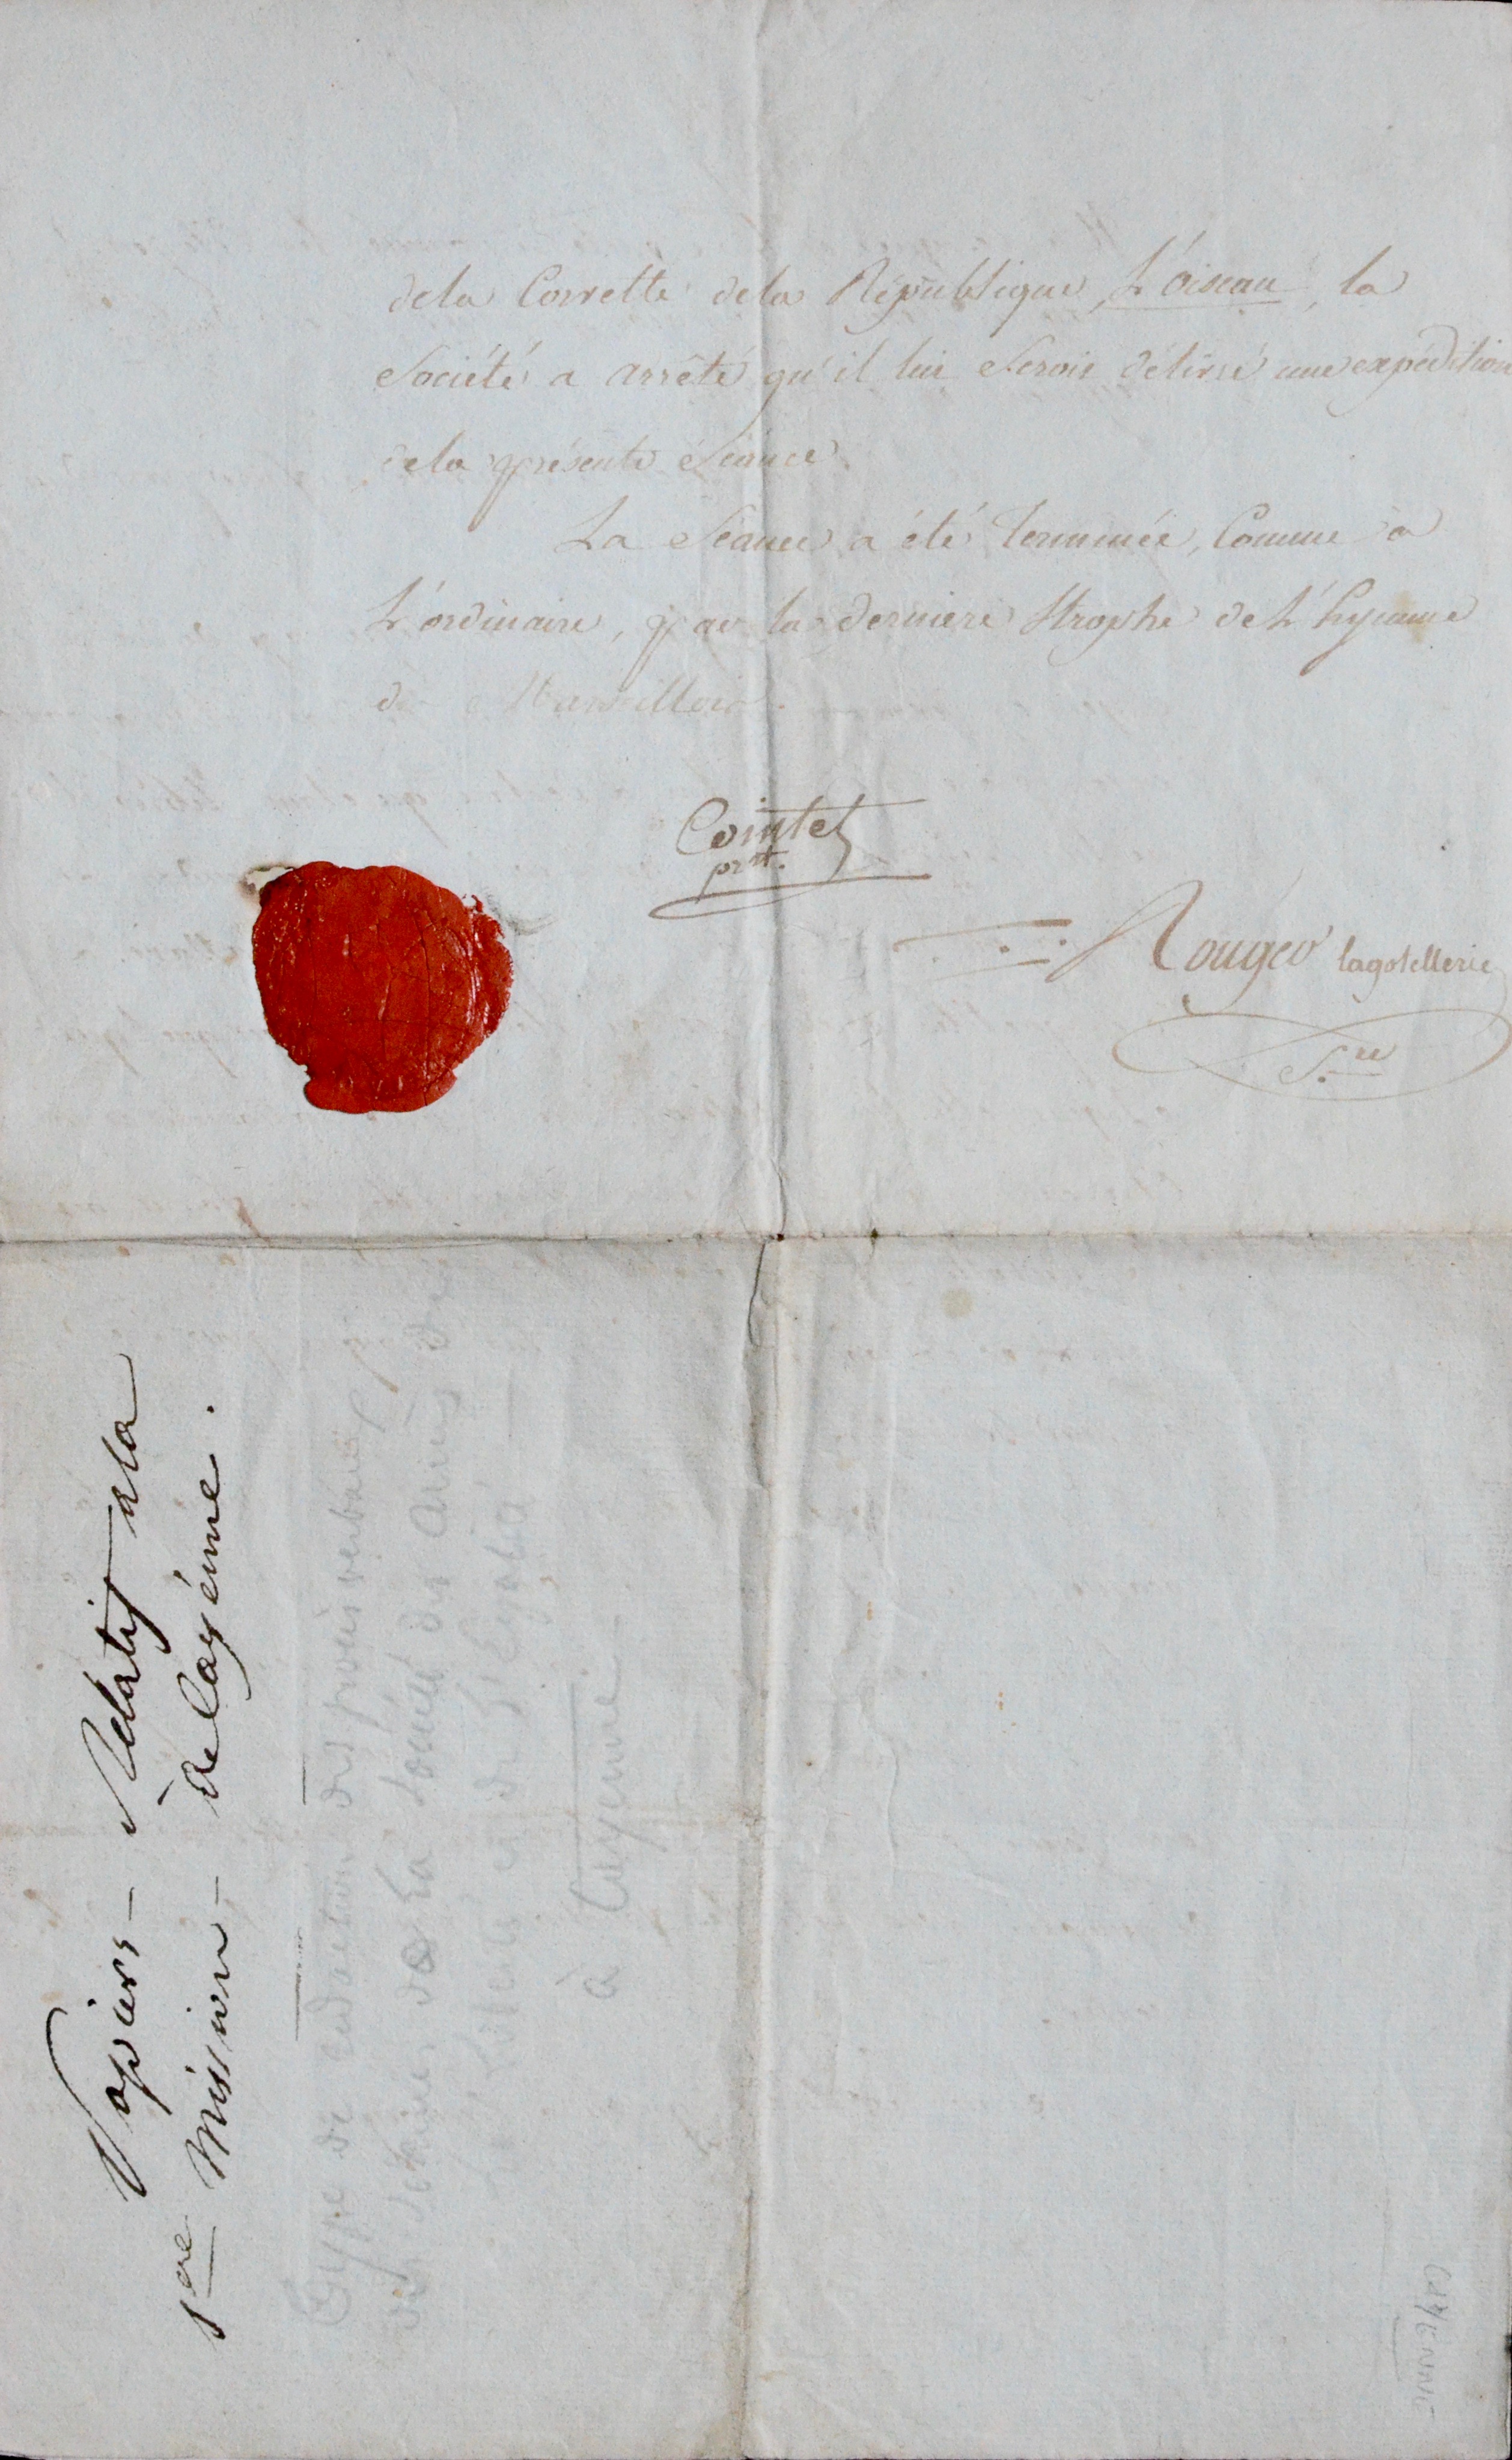 dela Corvette dela République, L'oiseau, la
Société a arrêté qu'il lui seroit délivré une expédition
dela présente Séance.
La Séance a été terminée, Comme a
L'ordinaire, par la derniere Strophe de L'hymne
de Marseillois.
Cointet
prtt.
Rougeo lagotellerie
S.re
Papiers – Relatif a la
1ere Mission – de Cayénne.
de procès verbaux
de La Société des amis de
La Liberté et de L'Egalité
à Cayenne
CAYENNE